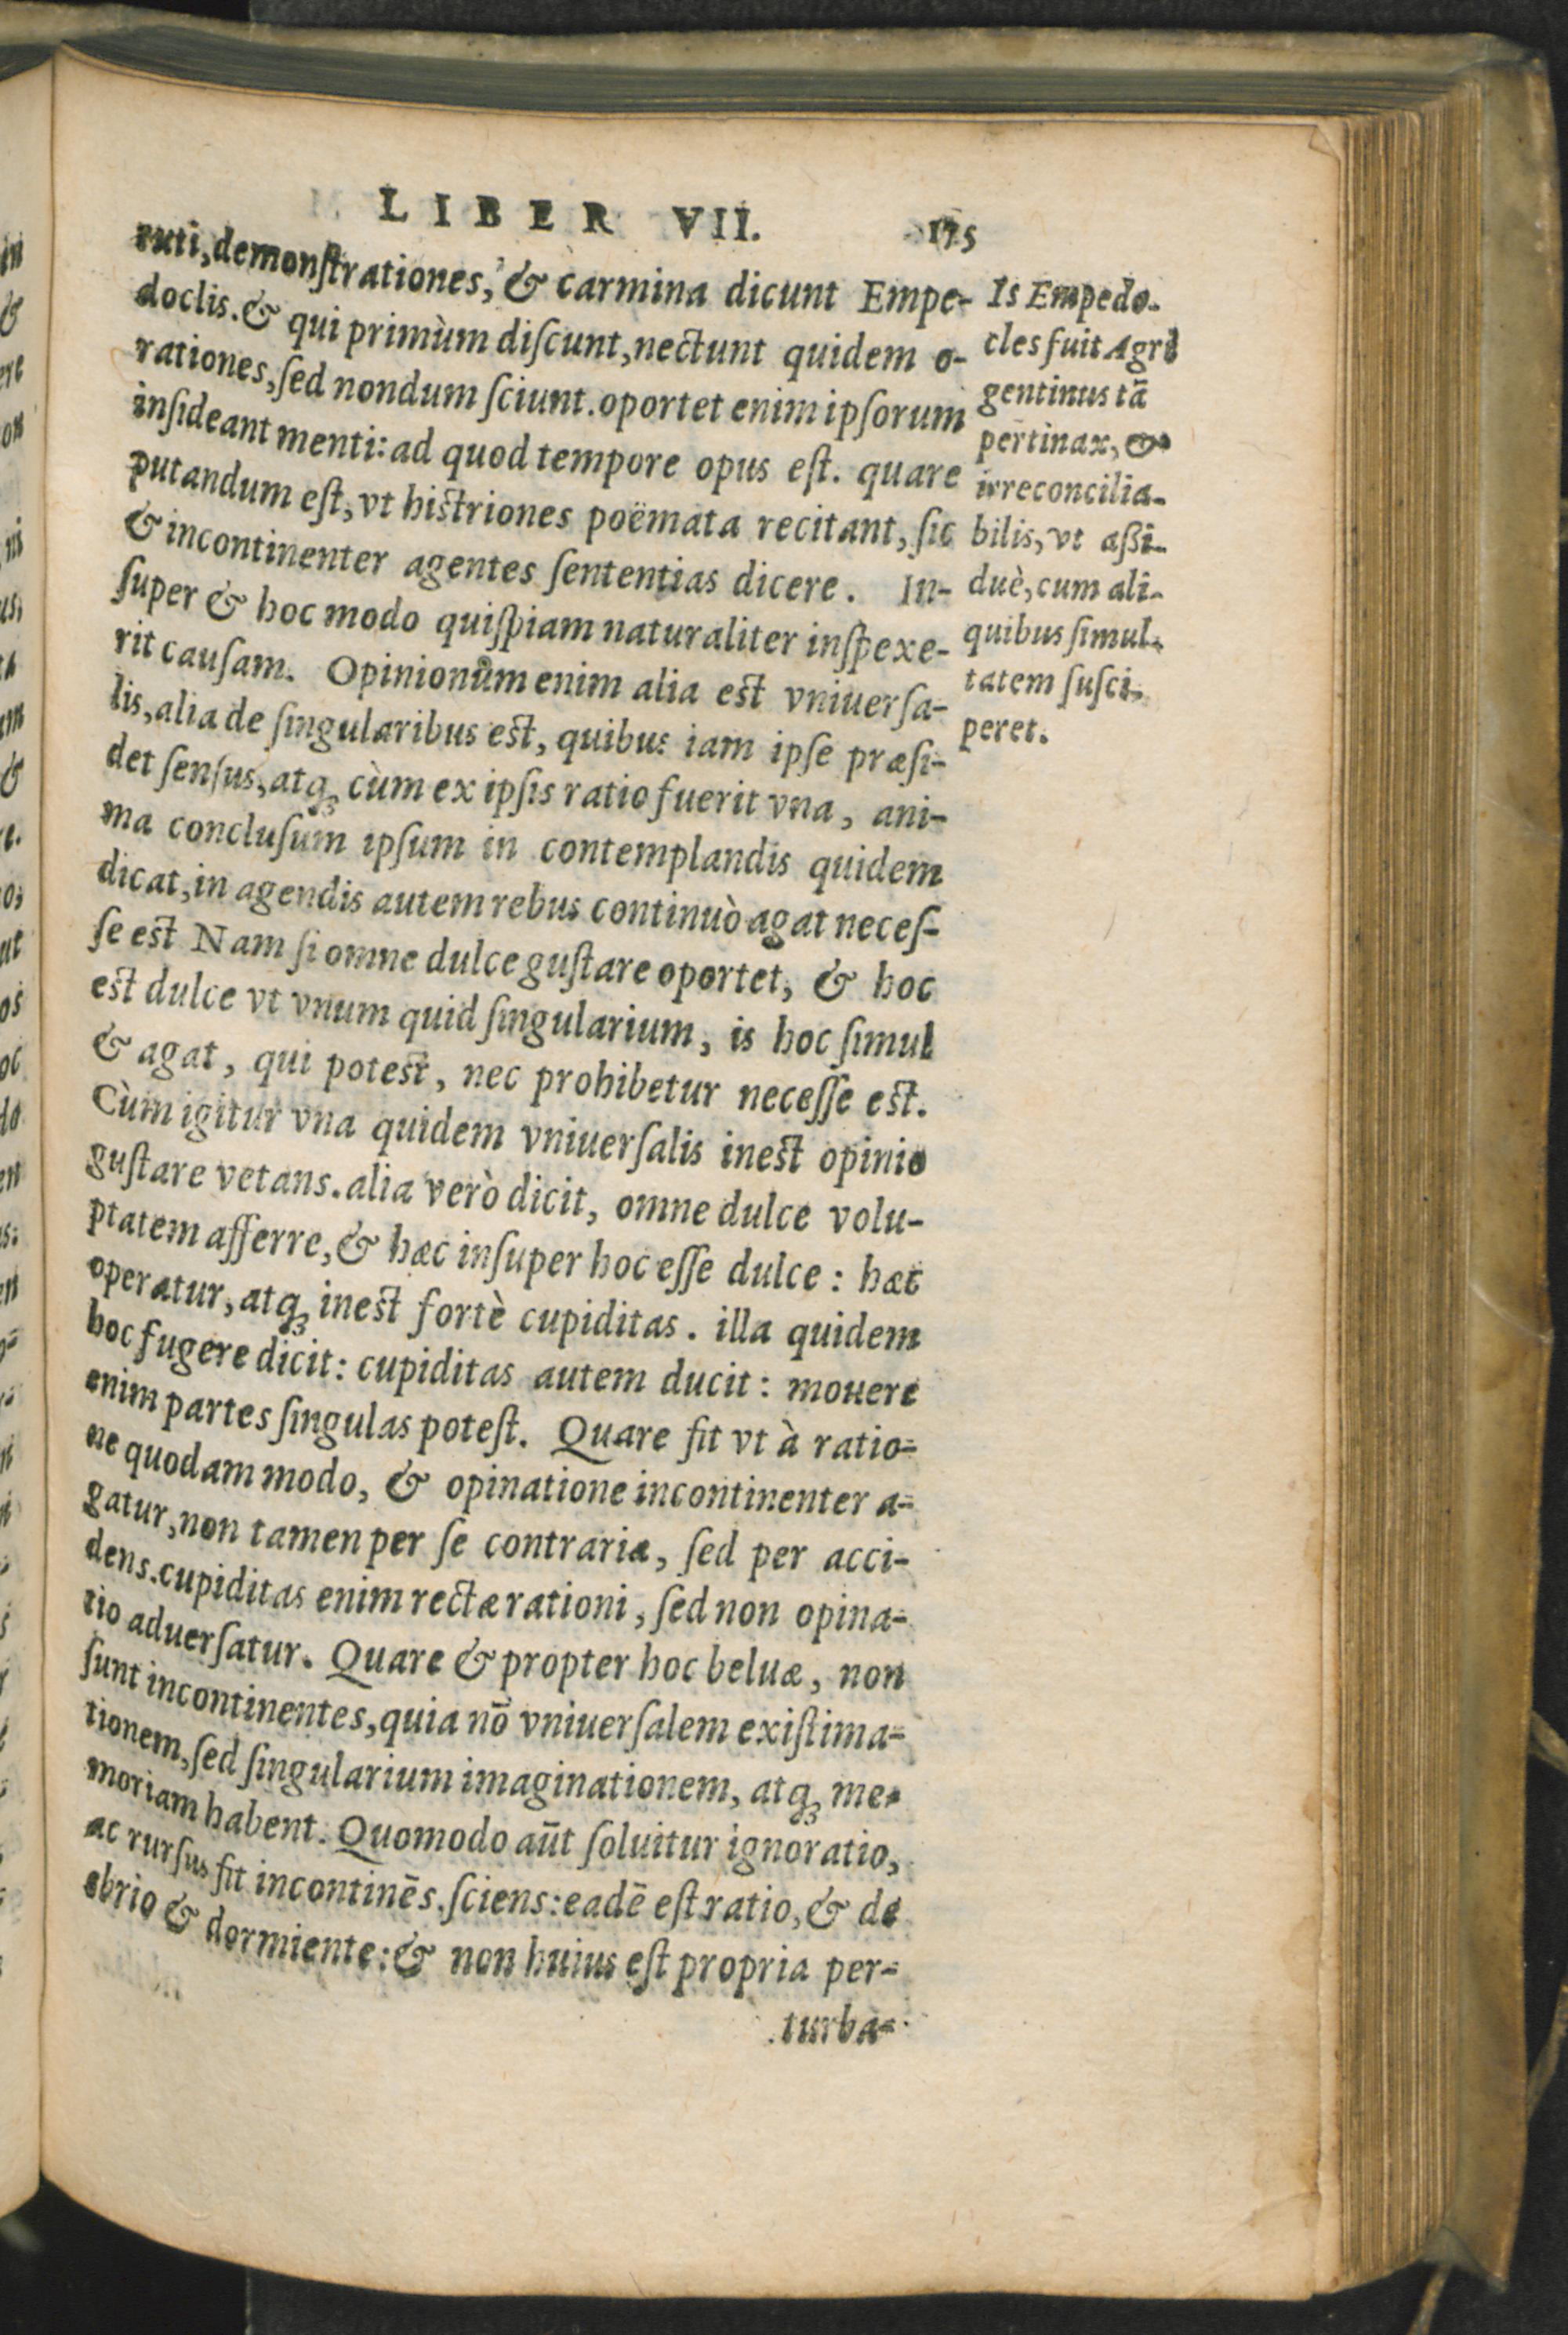 LIBER VII. 175
ruti, demonſtrationes, & carmina dicunt Empe-
doclis. & qui primùm diſcunt, nectunt quidem o-
rationes, ſed nondum ſciunt. oportet enim ipſorum
inſideant menti: ad quod tempore opus eſt. quare
putandum eſt, vt hiſtriones poëmata recitant, ſic
& incontinenter agentes ſententias dicere. In-
ſuper & hoc modo quiſpiam naturaliter inſpexe-
rit cauſam. Opinionum enim alia eſt vniuerſa-
lis, alia de ſingularibus eſt, quibus iam ipſe præſi-
det ſenſus, atq; cùm ex ipſis ratio fuerit vna, ani-
ma concluſum ipſum in contemplandis quidem
dicat, in agendis autem rebus continuò agat neceſ-
ſe eſt Nam ſi omne dulce guſtare oportet, & hoc
eſt dulce vt vnum quid ſingularium, is hoc ſimul
& agat, qui poteſt, nec prohibetur neceſſe eſt.
Cùm igitur vna quidem vniuerſalis ineſt opinio
guſtare vetans. alia verò dicit, omne dulce volu-
ptatem afferre, & hæc inſuper hoc eſſe dulce: hæc
operatur, atq; ineſt fortè cupiditas. illa quidem
hoc fugere dicit: cupiditas autem ducit: mouere
enim partes ſingulas poteſt. Quare fit vt à ratio-
ne quodammodo, & opinatione incontinenter a-
gatur, non tamen per ſe contraria, ſed per acci-
dens. cupiditas enim rectæ rationi, ſed non opina-
tio aduerſatur. Quare & propter hoc beluæ, non
ſunt incontinentes, quia nō vniuerſalem exiſtima-
tionem, ſed ſingularium imaginationem, atq; me-
moriam habent. Quomodo aūt ſoluitur ignoratio,
ac rurſus fit incontinēs. ſciens: eadē eſt ratio, & de
ebrio & dormiente: & non huius eſt propria per-
turba-
Is Empedo-
cles fuit Agri
gentinus tā
pertinax, &
irreconcilia-
bilis, vt aßi-
duè, cum ali-
quibus ſimul-
tatem ſuſci-
peret.